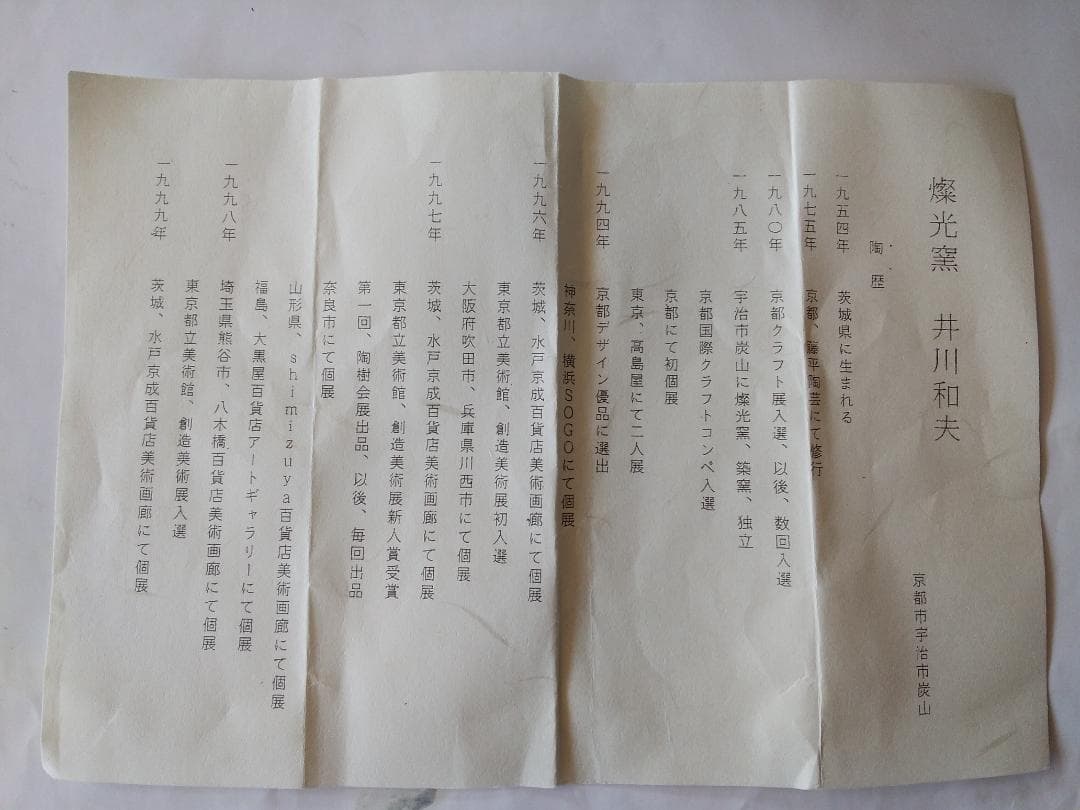 燦光窯　井川和夫
京都市宇治市炭山
陶歴
一九五四年　茨城県に生まれる
一九七五年　京都、藤平陶芸にて修行
一九八〇年　京都クラフト展入選、以後、数回入選
一九八五年　宇治市炭山に燦光窯、築窯、独立
京都国際クラフトコンペ入選
京都にて初個展
東京、高島屋にて二人展
一九九四年　京都デザイン優品に選出
神奈川、横浜SOGOにて個展
一九九六年　茨城、水戸京成百貨店美術画廊にて個展
東京都立美術館、創造美術展初入選
大阪府吹田市、兵庫県川西市にて個展
一九九七年　茨城、水戸京成百貨店美術画廊にて個展
東京都立美術館、創造美術展新人賞受賞
第一回、陶樹会展出品、以後、毎回出品
奈良市にて個展
山形県、shimizuya百貨店美術画廊にて個展
福島、大黒屋百貨店アートギャラリーにて個展
一九九八年　埼玉県熊谷市、八木橋百貨店美術画廊にて個展
東京都立美術館、創造美術展入選
一九九九年　茨城、水戸京成百貨店美術画廊にて個展